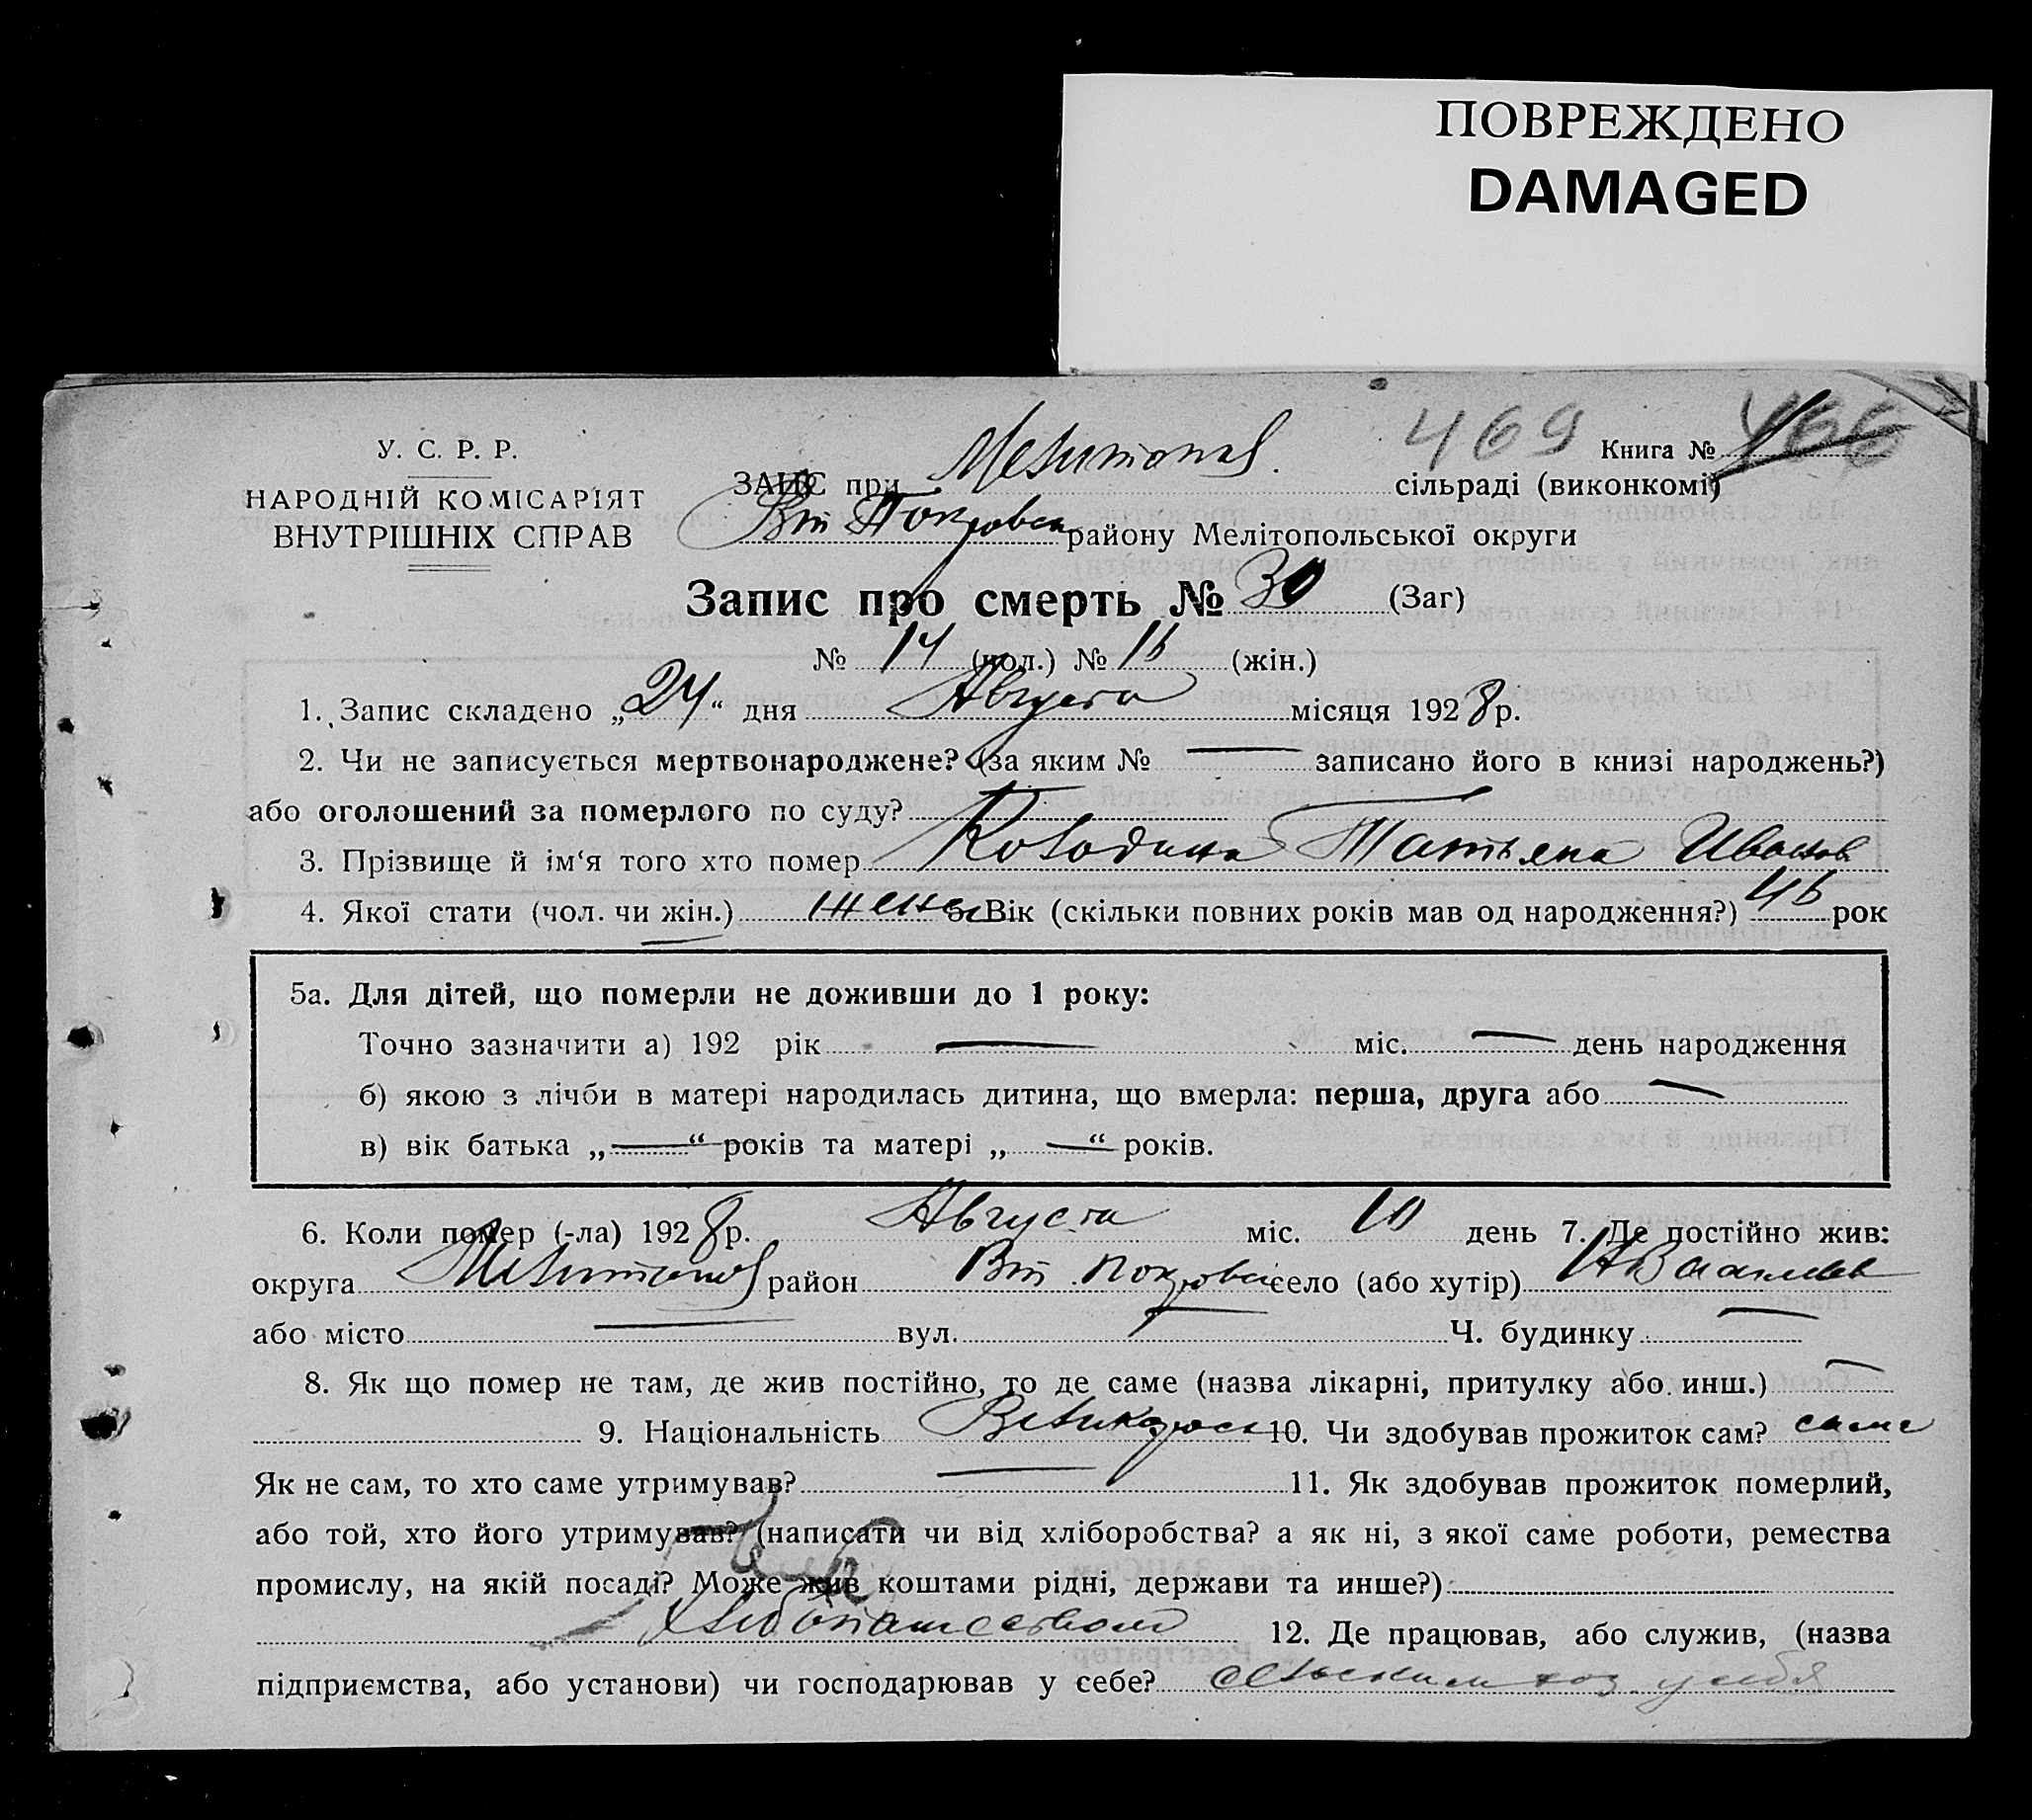 ПОВРЕЖДЕНО
DAMAGED
469 Книга № 466
У. С. Р. Р.
НАРОДНІЙ КОМІСАРІЯТ
ВНУТРІШНІХ СПРАВ
ЗАГС при Мелитопол. сільраді (виконкомі)
Вт Покровск району Мелітопольської округи
Запис про смерть № 30 (Заг)
№ 14 (чол.) № 16 (жін.)
1. Запис складено „24“ дня Августа місяця 1928 р.
2. Чи не записується мертвонароджене? (за яким № — записано його в книзі народжень?)
або оголошений за померлого по суду? —
3. Прізвище й ім‘я того хто помер Татьяна Иванов
4. Якої стати (чол. чи жін.) жен 5. Вік (скільки повних років мав од народження?) 46 рок
5а. Для дітей, що померли не доживши до 1 року:
Точно зазначити а) 192 рік — міс. — день народження
б) якою з лічби в матері народилась дитина, що вмерла: перша, друга або —
в) вік батька „—“ років та матері „—“ років.
6. Коли помер (-ла) 1928 р. Августа міс. 10 день 7. Де постійно жив:
округа Мелитопол район Вт. Покровск село (або хутір)
або місто — вул. — Ч. будинку —
8. Як що помер не там, де жив постійно, то де саме (назва лікарні, притулку або инш.) —
9. Національність Великорос 10. Чи здобував прожиток сам? сама
Як не сам, то хто саме утримував? — 11. Як здобував прожиток померлий,
або той, хто його утримував? (написати чи від хліборобства? а як ні, з якої саме роботи, ремества
промислу, на якій посаді? Може жив коштами рідні, держави та инше?)
Хлебопашеством 12. Де працював, або служив, (назва
підприємства, або установи) чи господарював у себе? сельским хоз. у себя